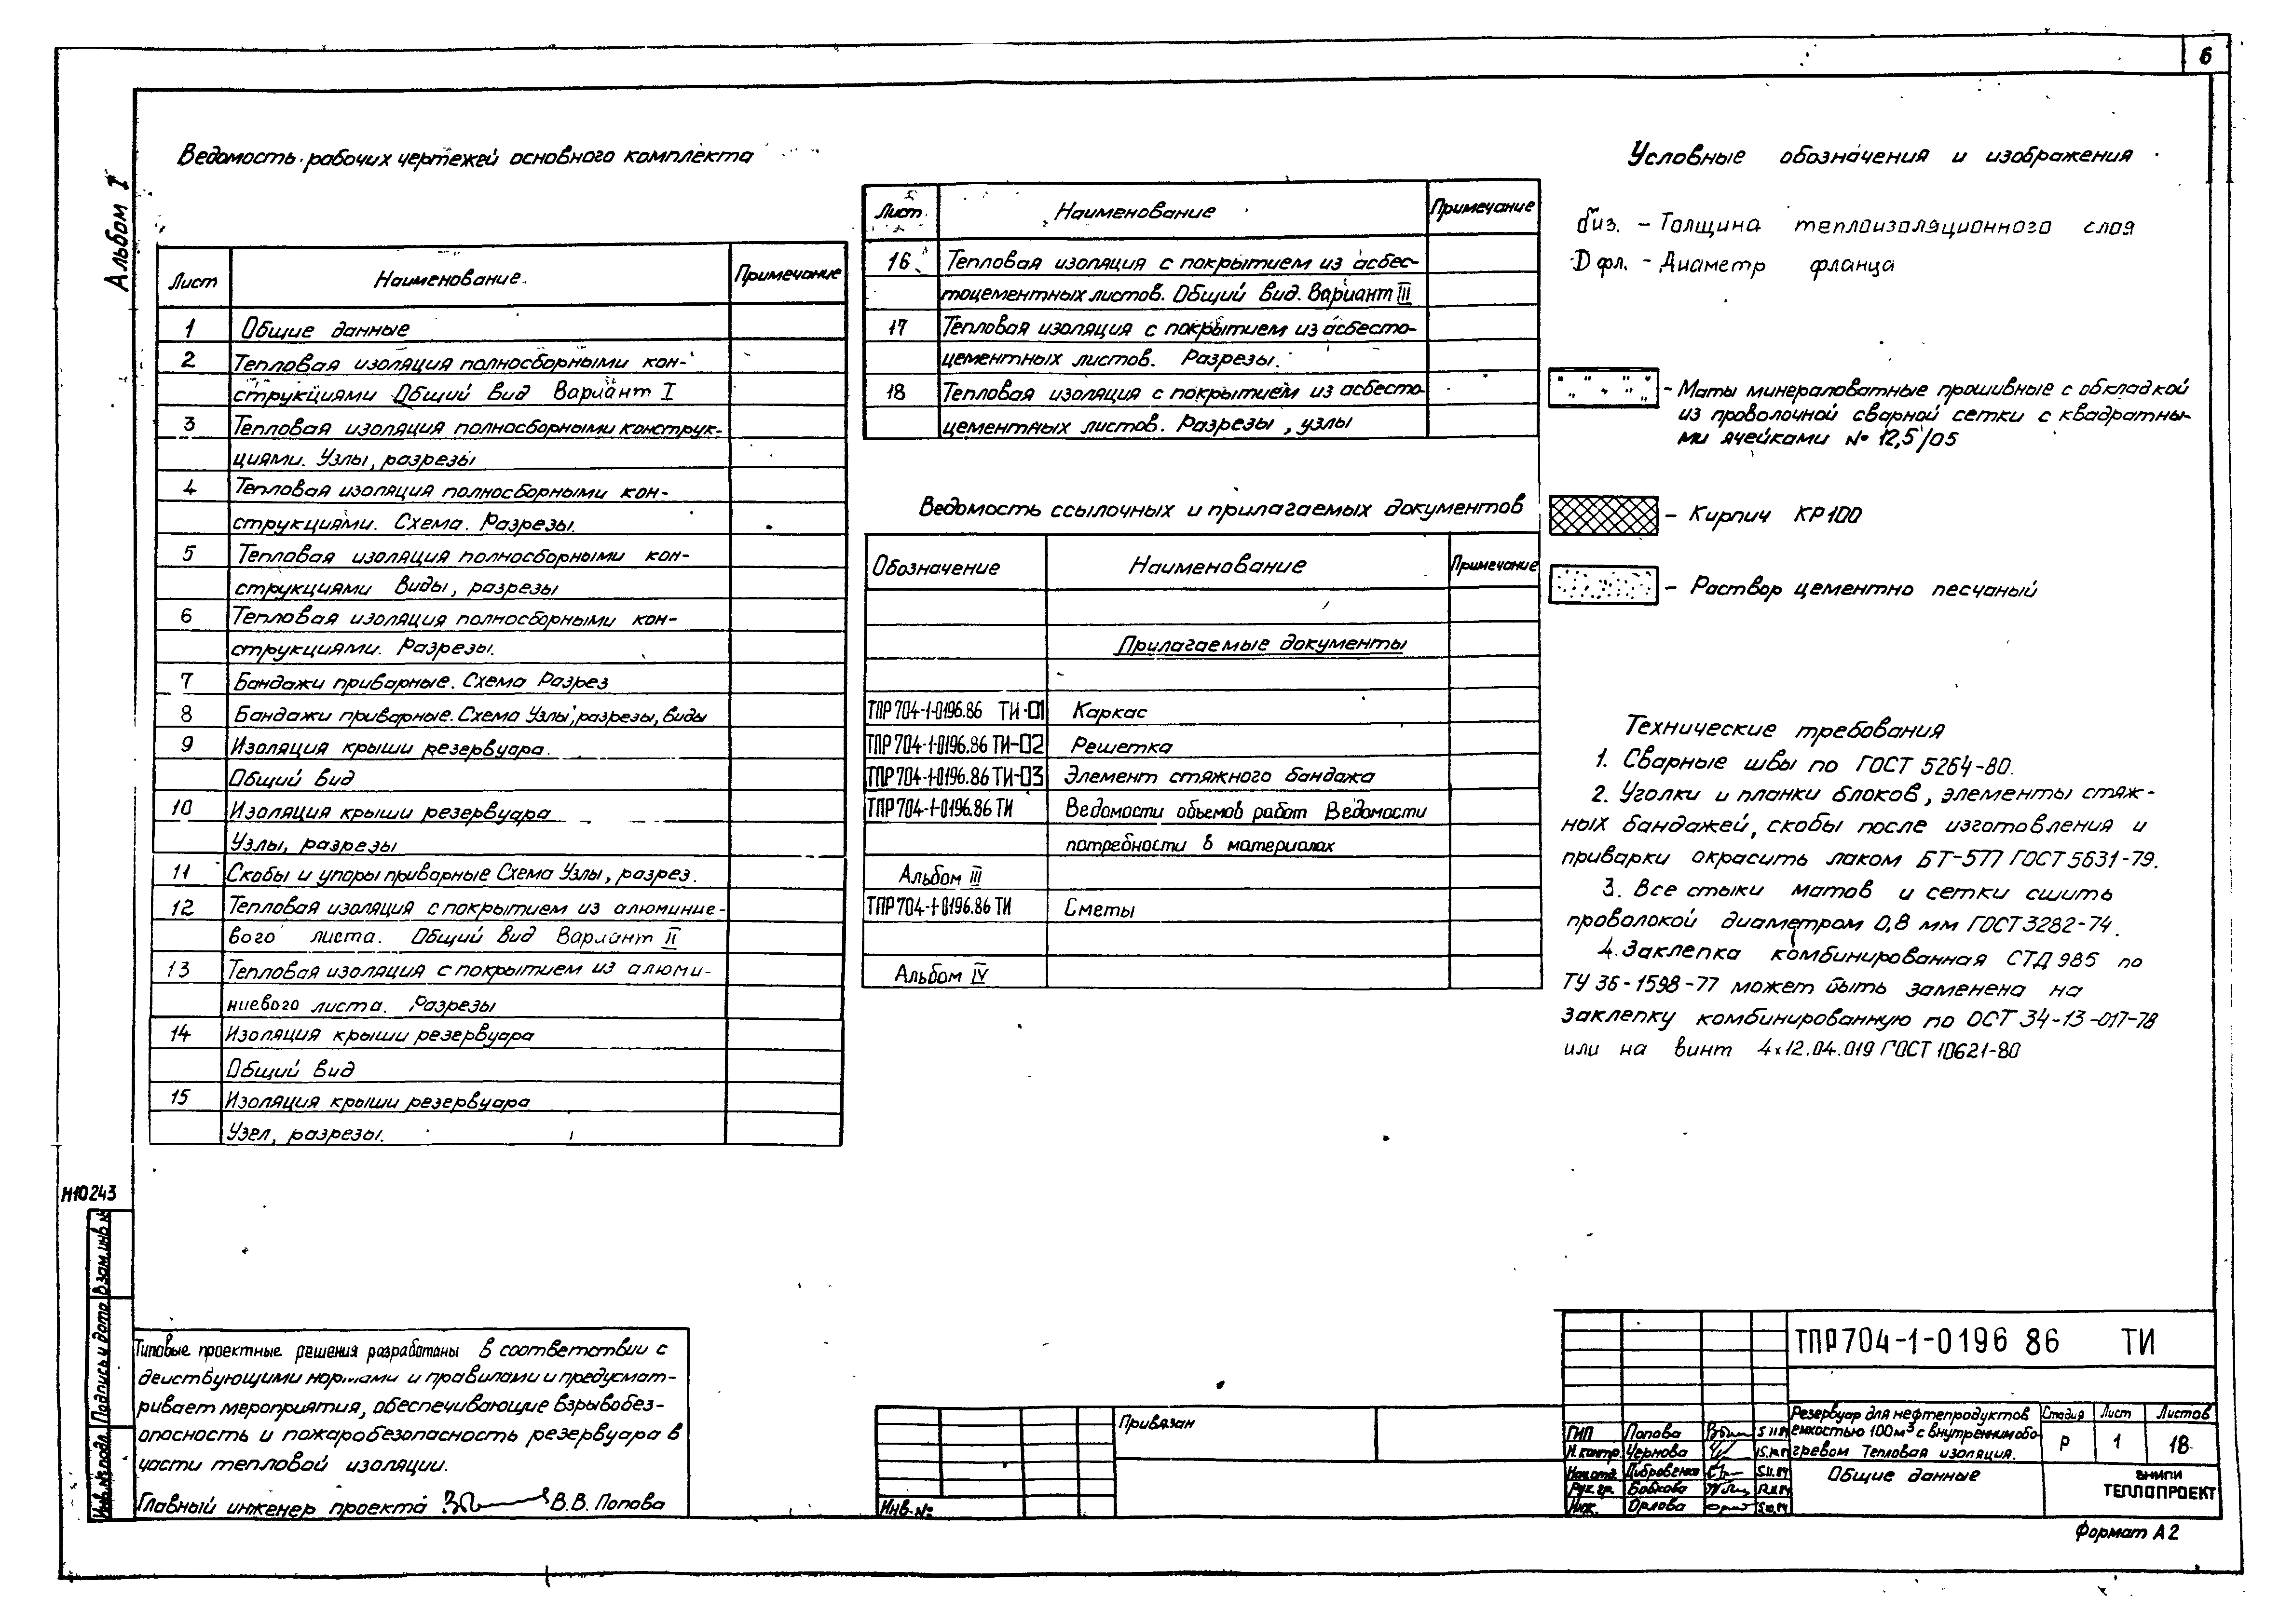 6
Альбом I
Ведомость рабочих чертежей основного комплекта
Лист Наименование Примечание
1 Общие данные
2 Тепловая изоляция полносборными кон-
струкциями Общий вид Вариант I
3 Тепловая изоляция полносборными конструк-
циями. Узлы, разрезы
4 Тепловая изоляция полносборными кон-
струкциями. Схема. Разрезы.
5 Тепловая изоляция полносборными кон-
струкциями Виды, разрезы
6 Тепловая изоляция полносборными кон-
струкциями. Разрезы.
7 Бандажи приварные. Схема Разрез
8 Бандажи приварные. Схема Узлы, разрезы, виды
9 Изоляция крыши резервуара.
Общий вид
10 Изоляция крыши резервуара
Узлы, разрезы
11 Скобы и упоры приварные Схема Узлы, разрез.
12 Тепловая изоляция с покрытием из алюминие-
вого листа. Общий вид Вариант II
13 Тепловая изоляция с покрытием из алюми-
ниевого листа. Разрезы
14 Изоляция крыши резервуара
Общий вид
15 Изоляция крыши резервуара
Узел, разрезы.
Лист Наименование Примечание
16 Тепловая изоляция с покрытием из асбес-
тоцементных листов. Общий вид. Вариант III
17 Тепловая изоляция с покрытием из асбесто-
цементных листов. Разрезы.
18 Тепловая изоляция с покрытием из асбесто-
цементных листов. Разрезы, узлы
Ведомость ссылочных и прилагаемых документов
Обозначение Наименование Примечание
Прилагаемые документы
ТПР 704-1-0196.86 ТИ-01 Каркас
ТПР 704-1-0196.86 ТИ-02 Решетка
ТПР 704-1-0196.86 ТИ-03 Элемент стяжного бандажа
ТПР 704-1-0196.86 ТИ Ведомости объемов работ Ведомости
потребности в материалах
Альбом III
ТПР 704-1-0196.86 ТИ Сметы
Альбом IV
Условные обозначения и изображения
биз. - Толщина теплоизоляционного слоя
D фл. - Диаметр фланца
- Маты минераловатные прошивные с обкладкой
из проволочной сварной сетки с квадратны-
ми ячейками № 12,5/05
- Кирпич КР100
- Раствор цементно песчаный
Технические требования
1. Сварные швы по ГОСТ 5264-80.
2. Уголки и планки блоков, элементы стяж-
ных бандажей, скобы после изготовления и
приварки окрасить лаком БТ-577 ГОСТ 5631-79.
3. Все стыки матов и сетки сшить
проволокой диаметром 0,8 мм ГОСТ 3282-74.
4. Заклепка комбинированная СТД 985 по
ТУ 36-1598-77 может быть заменена на
заклепку комбинированную по ОСТ 34-13-017-78
или на винт 4х12.04.019 ГОСТ 10621-80
Н10243
Инв.№ подл. Подпись и дата Взам.инв.№
Типовые проектные решения разработаны в соответствии с
действующими нормами и правилами и предусмат-
ривает мероприятия, обеспечивающие взрывобез-
опасность и пожаробезопасность резервуара в
части тепловой изоляции.
Главный инженер проекта В.В. Попова
Привязан
Инв.№
ТПР 704-1-0196 86 ТИ
Резервуар для нефтепродуктов
емкостью 100м³ с внутренним обо-
гревом Тепловая изоляция.
Стадия Лист Листов
Р 1 18
ГИП Попова
Н.контр. Чернова
Нач.отд. Дибровенко 5.11.84
Рук.гр. Бобкова
Инж. Орлова
Общие данные
ВНИПИ
ТЕПЛОПРОЕКТ
Формат А2